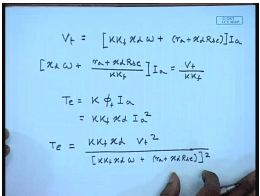 V_t = [KK_f x_d ω + (r_a + x_d R_se)] I_a
[x_d ω + (r_a + x_d R_se)/(KK_f)] I_a = V_t/(KK_f)
T_e = K φ_f I_a
= KK_f x_d I_a²
T_e = (KK_f x_d V_t²)/([KK_f x_d ω + (r_a + x_d R_se)]²)